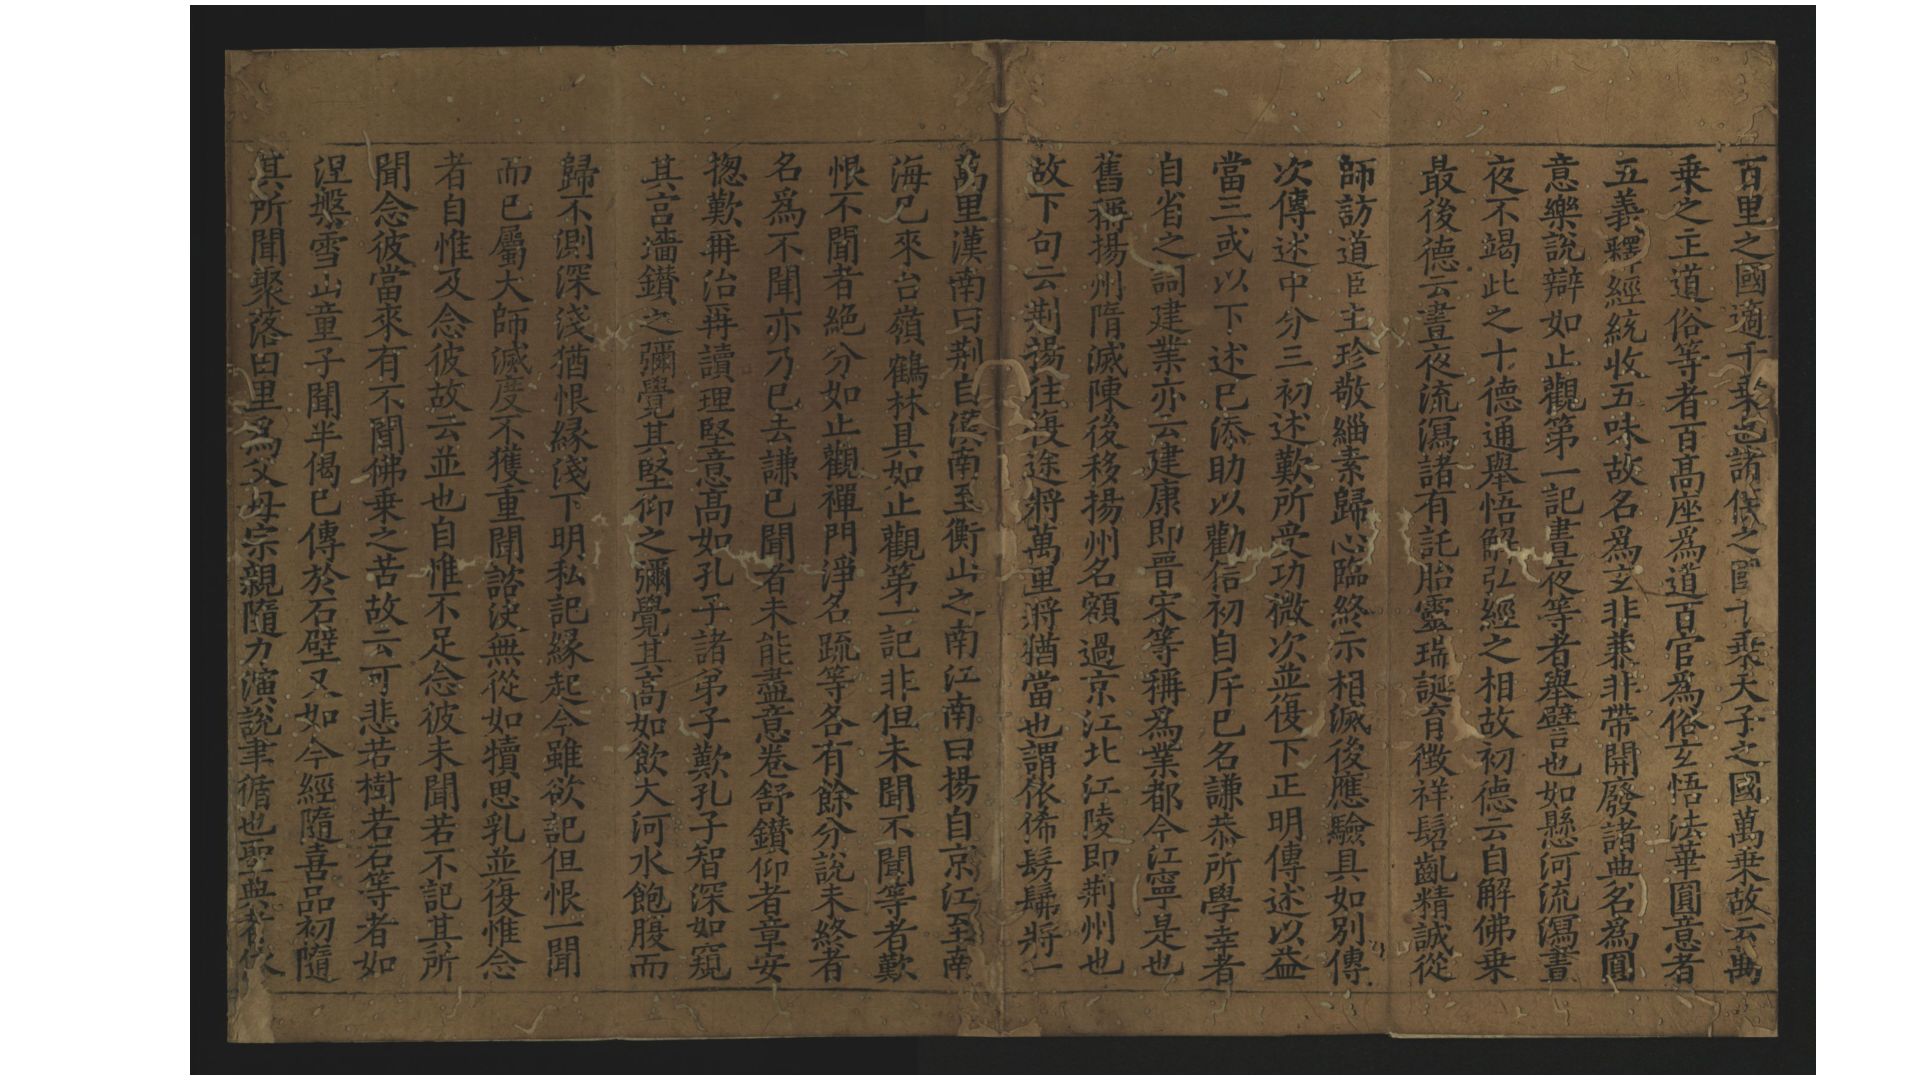 百里之國適千乘也諸侯之國千乘天子之國萬乘故云萬
乘之主道俗等者百髙座爲道百官爲俗玄悟法華圓意者
五義釋經統收五味故名爲玄非兼非帶開廢諸典名爲圓
意樂說辯如止觀第一記晝夜等者舉譬言也如懸河流瀉晝
夜不竭此之十德通舉悟解弘經之相故初德云自解佛乗
最後德云晝夜流瀉諸有託胎靈瑞誕育徵祥髫齓精誠從
師訪道臣主珍敬緇素歸心臨終示相滅後應驗具如别傳
次傳述中分三初述歎所受功微次並復下正明傳述以益
當三或以下述已添助以勸信初自斥已名謙恭所學幸者
自省之詞建業亦云建康即晋宋等稱爲業都今江寧是也
舊稱揚州隋滅陳後移揚州名額過京江北江陵即荆州也
故下句云荆揚往復途將萬里將猶當也謂依俙髣髴將一
萬里漢南曰荆自漢南至衡山之南江南曰揚自京江至南
海已來台嶺鶴林具如止觀第一記非但未聞不聞等者歎
恨不聞者絶分如止觀禪門淨名疏等各有餘分說未終者
名爲不聞亦乃已去謙已聞者未能盡意卷舒鑚仰者章安
揔歎再治再讀理堅意髙如孔子諸弟子歎孔子智深如窺
其宫墻鑚之彌覺其堅仰之彌覺其高如飲大河水飽腹而
歸不測深淺猶恨縁淺下明私記縁起今雖欲記但恨一聞
而已屬大師滅度不獲重聞諮決無從如犢思乳並復惟念
者自惟及念彼故云並也自惟不足念彼未聞若不記其所
聞念彼當來有不聞佛乗之苦故云可悲若樹若石等者如
涅槃雪山童子聞半偈已傳於石壁又如今經隨喜品初隨
其所聞聚落田里爲父母宗親隨力演說聿循也聖典若依